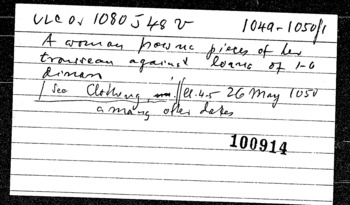 ULC Or 1080 J 48 v 1049-1050/1
A woman pawns pieces of her
trousseau against loans of 1-6
dinars
/ see Clothing, // ll. 4.5 26 May 1050
among other dates
100914